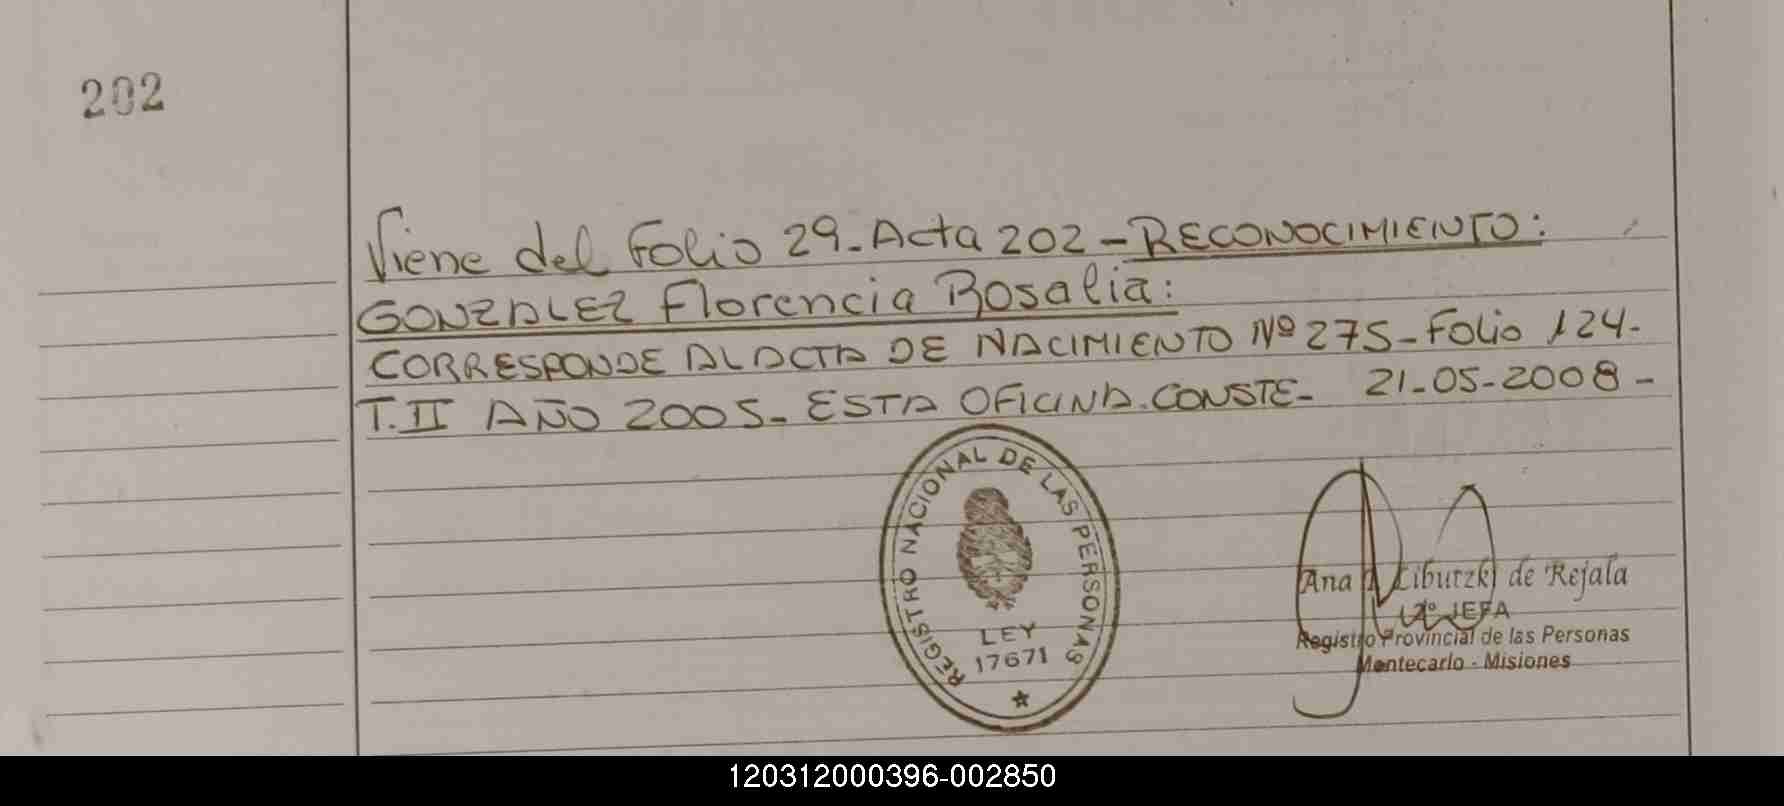 202
Viene del Folio 29-Acta 202-RECONOCIMIENTO:
GONZALEZ Florencia Rosalia:
CORRESPONDE AL ACTA DE NACIMIENTO Nº 275-Folio 124-
T.II AÑO 2005- ESTA OFICINA.CONSTE- 21-05-2008-
REGISTRO NACIONAL DE LAS PERSONAS
LEY
17671
Ana Ciburzki de Rejala
2º JEFA
Registro Provincial de las Personas
Montecarlo - Misiones
120312000396-002850